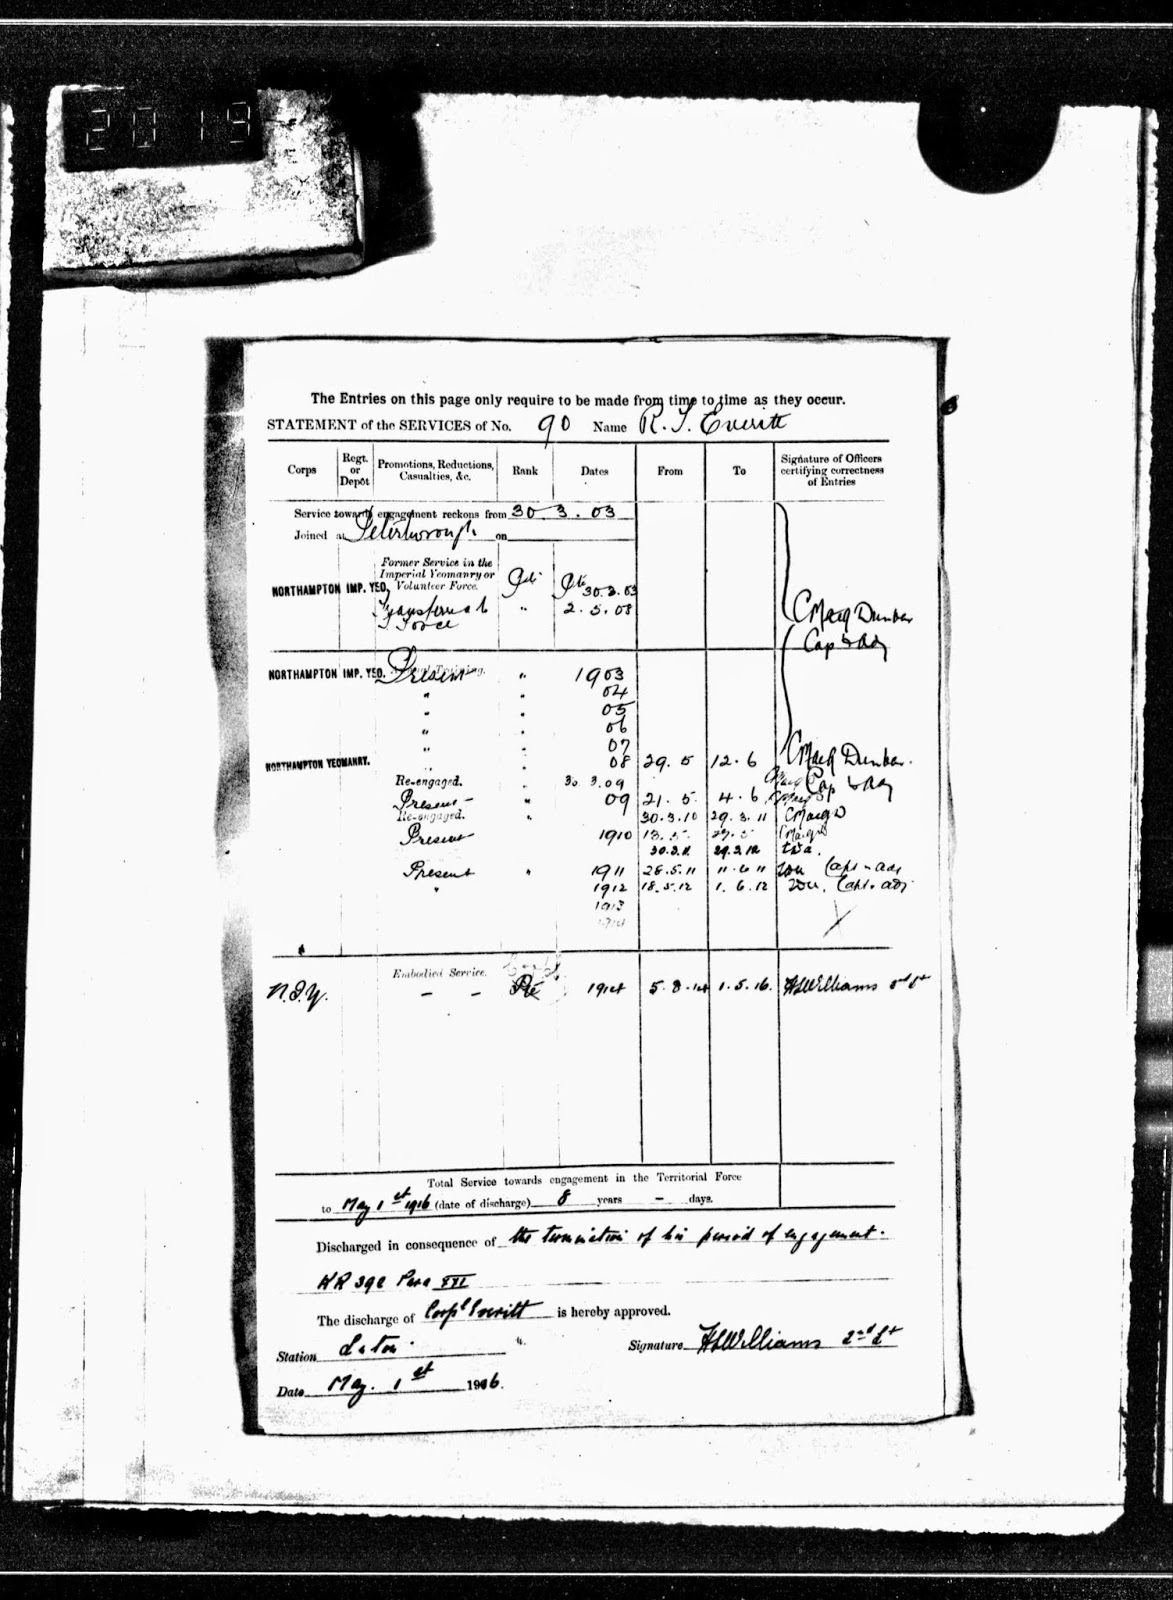 2019
The Entries on this page only require to be made from time to time as they occur.
STATEMENT of the SERVICES of No. 90 Name R. T. Everitt
Corps Regt. or Depôt Promotions, Reductions, Casualties, &c. Rank Dates From To Signature of Officers certifying correctness of Entries
Service towards engagement reckons from 30 3. 03
Joined at Peterborough on
Former Service in the
Imperial Yeomanry or
NORTHAMPTON IMP. YEO. Volunteer Force. Pte 30.3.03
Transferred to " 2.5.08
T Force
Cap & Adj
NORTHAMPTON IMP. YEO. Present Annual Training. " 1903
" " 04
" " 05
" " 06
" " 07
NORTHAMPTON YEOMANRY. " " 08 29. 5 12. 6
Re-engaged. " 30 3.09 Cap & Adj
Present " 09 21. 5. 4. 6
Re-engaged. " 30.3.10 29.3.11
Present 1910
30.3.11 29.3.12
Present " 1911 28.5.11 11.6.11 Capt & adj
" 1912 18.5.12 1.6.12 Capt & adj
1913
1914
Embodied Service.
N.I.Y. – – Pte 1914 5.8.14 1.5.16. HWilliams 2nd Lt
Total Service towards engagement in the Territorial Force
to May 1st 1916 (date of discharge) 8 years – days.
Discharged in consequence of the termination of his period of engagement.
KR 392 Para XXI
The discharge of Corpl Everitt is hereby approved.
Station Signature HWilliams 2nd Lt
Date May. 1st 1916.